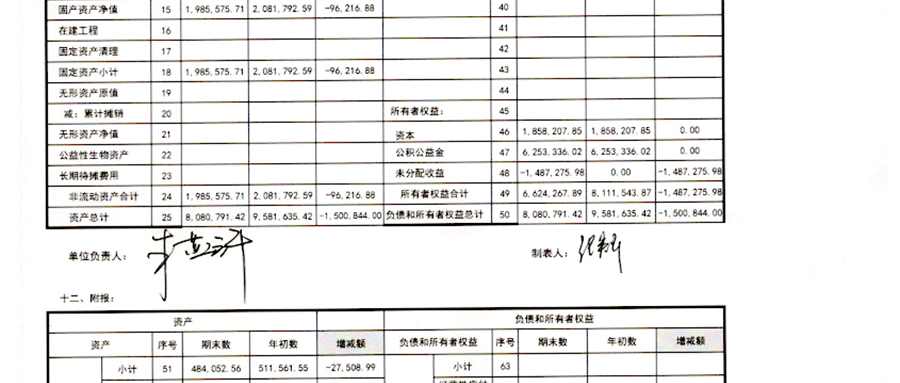 固定资产净值 15 1,985,575.71 2,081,792.59 -96,216.88 40
在建工程 16 41
固定资产清理 17 42
固定资产小计 18 1,985,575.71 2,081,792.59 -96,216.88 43
无形资产原值 19 44
减：累计摊销 20 所有者权益： 45
无形资产净值 21 资本 46 1,858,207.85 1,858,207.85 0.00
公益性生物资产 22 公积公益金 47 6,253,336.02 6,253,336.02 0.00
长期待摊费用 23 未分配收益 48 -1,487,275.98 0.00 -1,487,275.98
非流动资产合计 24 1,985,575.71 2,081,792.59 -96,216.88 所有者权益合计 49 6,624,267.89 8,111,543.87 -1,487,275.98
资产总计 25 8,080,791.42 9,581,635.42 -1,500,844.00 负债和所有者权益总计 50 8,080,791.42 9,581,635.42 -1,500,844.00
单位负责人： 制表人：
十二、附报：
资产 负债和所有者权益
资产 序号 期末数 年初数 增减额 负债和所有者权益 序号 期末数 年初数 增减额
小计 51 484,052.56 511,561.55 -27,508.99 小计 63